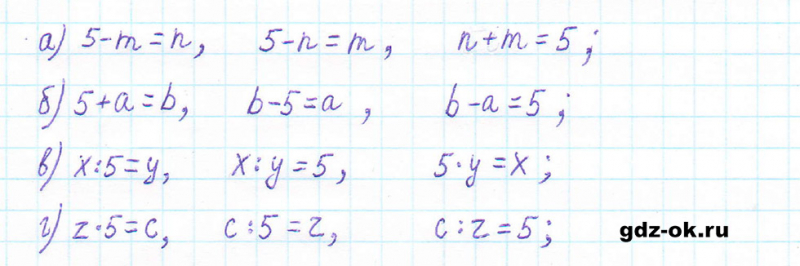 а) 5-m=n, 5-n=m, n+m=5;
б) 5+a=b, b-5=a, b-a=5;
в) x:5=y, x:y=5, 5·y=x;
г) z·5=c, c:5=z, c:z=5;
gdz-ok.ru